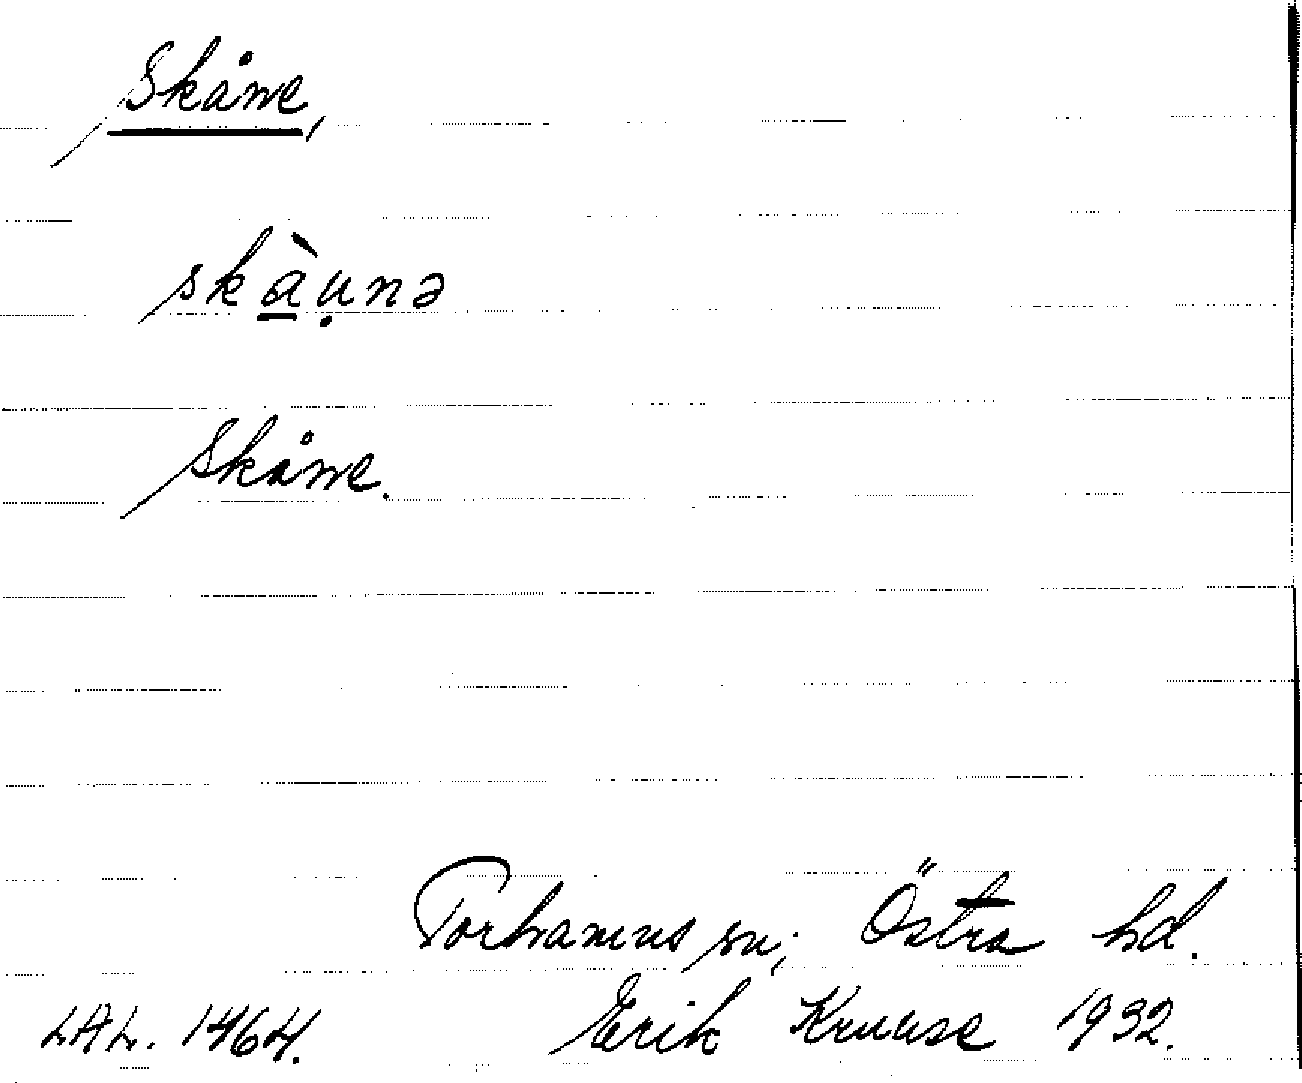 Skåne,
skà̱u̩nə
Skåne.
Torhamns sn; Östra hd.
LAL. 1464. Erik Kruuse 1932.